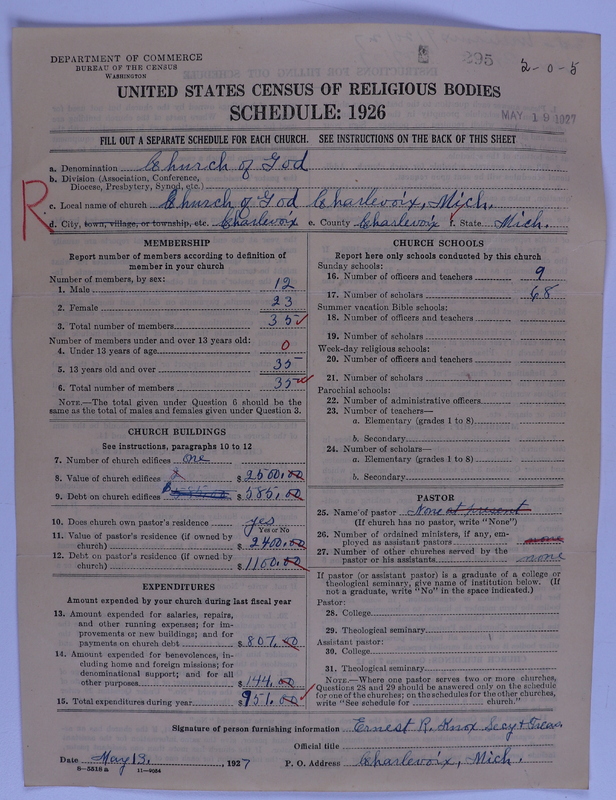 DEPARTMENT OF COMMERCE
BUREAU OF THE CENSUS
WASHINGTON
295
2-0-5
UNITED STATES CENSUS OF RELIGIOUS BODIES
SCHEDULE: 1926
MAY 19 1927
FILL OUT A SEPARATE SCHEDULE FOR EACH CHURCH. SEE INSTRUCTIONS ON THE BACK OF THIS SHEET
R
a. Denomination Church of God
b. Division (Association, Conference, Diocese, Presbytery, Synod, etc.)
c. Local name of church Church of God Charlevoix, Mich.
d. City, town, village, or township, etc. Charlevoix e. County Charlevoix f. State Mich.
MEMBERSHIP
Report number of members according to definition of member in your church
Number of members, by sex:
1. Male 12
2. Female 23
3. Total number of members 35
Number of members under and over 13 years old:
4. Under 13 years of age 0
5. 13 years old and over 35
6. Total number of members 35
NOTE.—The total given under Question 6 should be
same as the total of males and females given under Question 3.
CHURCH BUILDINGS
See instructions, paragraphs 10 to 12
7. Number of church edifices one
8. Value of church edifices $ 2500.00
9. Debt on church edifices $ 585.00
10. Does church own pastor's residence yes
Yes or No
11. Value of pastor's residence (if owned by
church) $ 2400.00
12. Debt on pastor's residence (if owned by
church) $ 1160.00
EXPENDITURES
Amount expended by your church during last fiscal year
13. Amount expended for salaries, repairs,
and other running expenses; for im-
provements or new buildings; and for
payments on church debt $ 807.00
14. Amount expended for benevolences, in-
cluding home and foreign missions; for
denominational support; and for all
other purposes $ 144.00
15. Total expenditures during year $ 951.00
CHURCH SCHOOLS
Report here only schools conducted by this church
Sunday schools:
16. Number of officers and teachers 9
17. Number of scholars 68
Summer vacation Bible schools:
18. Number of officers and teachers
19. Number of scholars
Week-day religious schools:
20. Number of officers and teachers
21. Number of scholars
Parochial schools:
22. Number of administrative officers
23. Number of teachers—
a. Elementary (grades 1 to 8)
b. Secondary
24. Number of scholars—
a. Elementary (grades 1 to 8)
b. Secondary
PASTOR
25. Name of pastor None at present
(If church has no pastor, write "None")
26. Number of ordained ministers, if any, em-
ployed as assistant pastors none
27. Number of other churches served by the
pastor or his assistants none
If pastor (or assistant pastor) is a graduate of a college or
theological seminary, give name of institution below. (If
not a graduate, write "No" in the space indicated.)
Pastor:
28. College
29. Theological seminary
Assistant pastor:
30. College
31. Theological seminary
NOTE.—Where one pastor serves two or more churches,
Questions 28 and 29 should be answered only on the schedule
for one of the churches; on the schedules for the other churches,
write "See schedule for church."
Signature of person furnishing information Ernest R. Knox Secy & Treas
Official title
Date May 13, 1927
P. O. Address Charlevoix, Mich.
8-5518 a 11-9054